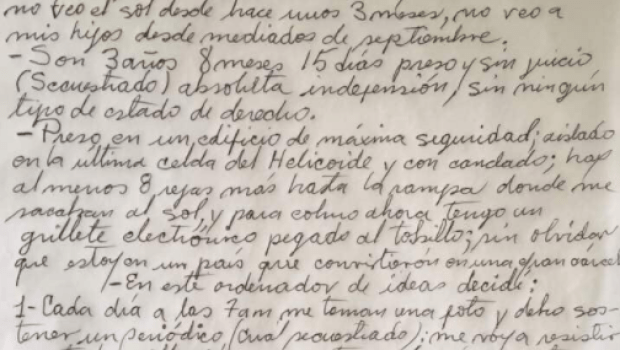 no veo el sol desde hace unos 3 meses, no veo a
mis hijos desde mediados de septiembre.
- Son 3 años 8 meses 15 días preso y sin juicio
(Secuestrado) absoluta indefensión, sin ningún
tipo de estado de derecho.
- Preso en un edificio de máxima seguridad; aislado
en la última celda del Helicoide y con candado; hay
al menos 8 rejas más hasta la rampa donde me
sacaban al sol, y para colmo ahora tengo un
grillete electrónico pegado al tobillo; sin olvidar
que estoy en un país que convirtieron en una gran cárcel
- En este ordenador de ideas decidí:
1- Cada día a las 7am me toman una foto y debo sos-
tener un periódico (cual secuestrado); me voy a resistir